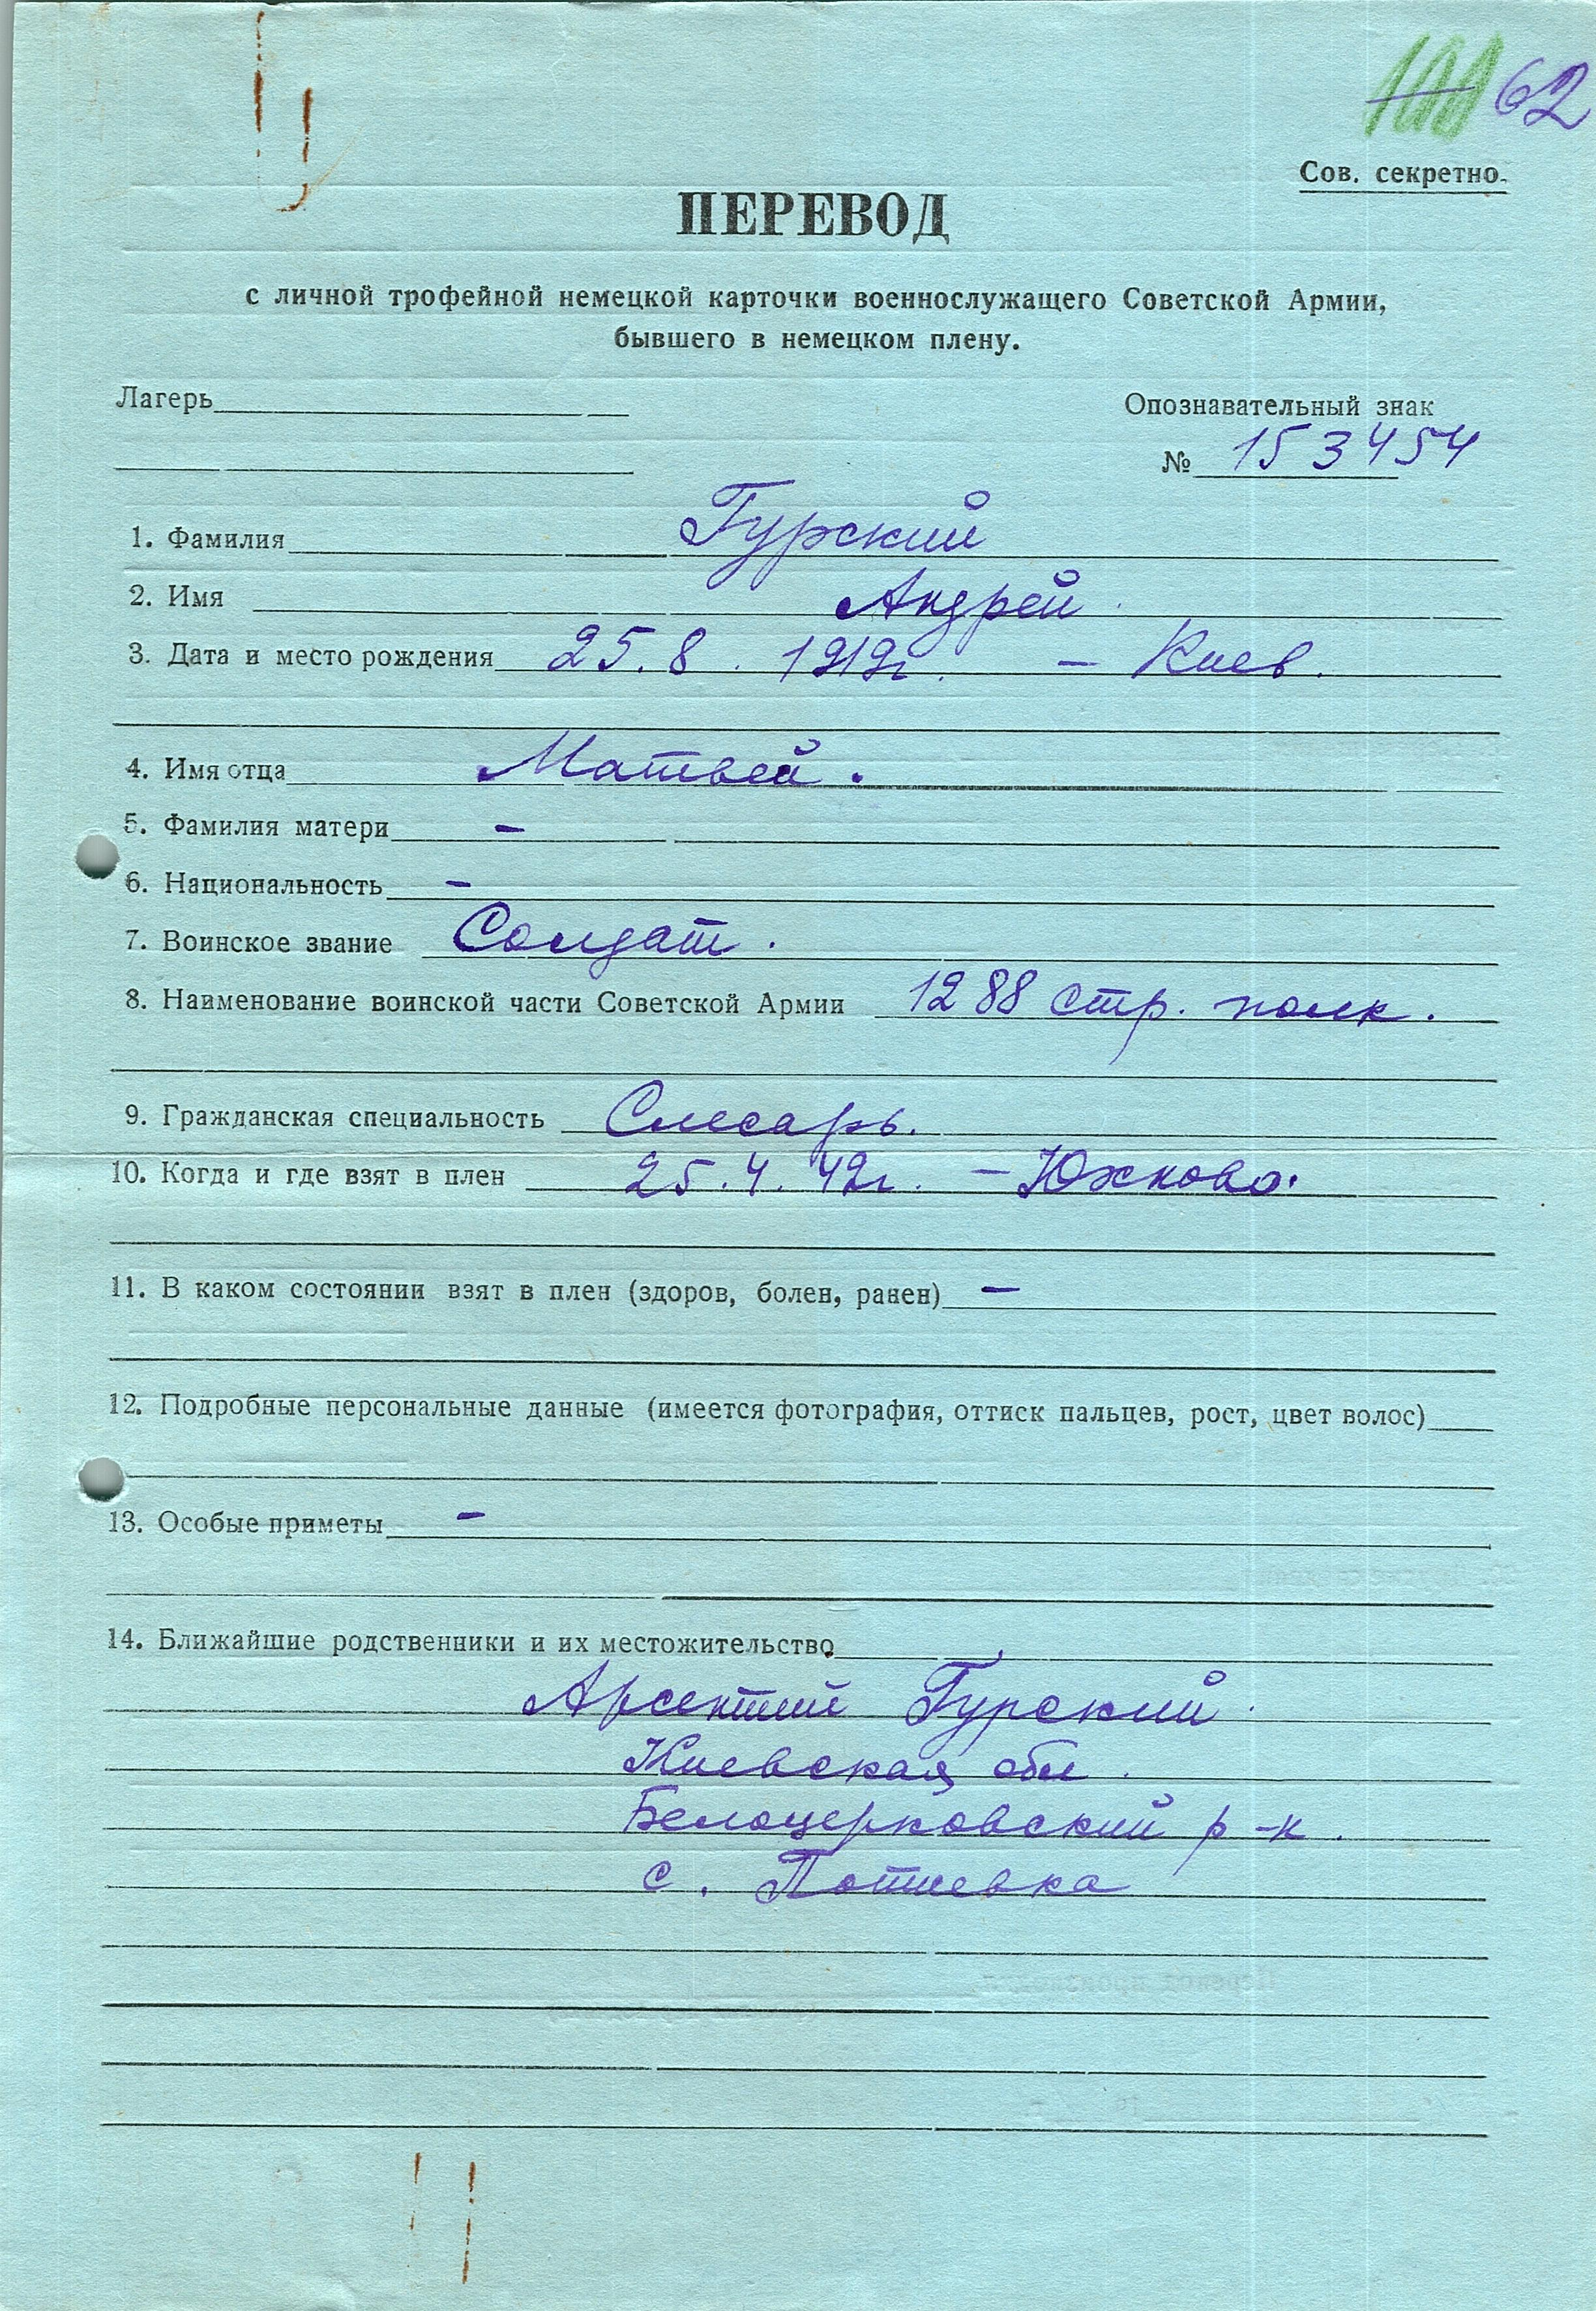 101 62
Сов. секретно.
ПЕРЕВОД
с личной трофейной немецкой карточки военнослужащего Советской Армии,
бывшего в немецком плену.
Лагерь
Опознавательный знак
№ 153454
1. Фамилия Гурский
2. Имя Андрей.
3. Дата и место рождения 25.8.1919г. – Киев.
4. Имя отца Матвей.
5. Фамилия матери –
6. Национальность –
7. Воинское звание Солдат.
8. Наименование воинской части Советской Армии 1288 стр. полк.
9. Гражданская специальность Слесарь.
10. Когда и где взят в плен 25.4.42г. – Юхново.
11. В каком состоянии взят в плен (здоров, болен, ранен) –
12. Подробные персональные данные (имеется фотография, оттиск пальцев, рост, цвет волос)
13. Особые приметы –
14. Ближайшие родственники и их местожительство
Арсентий Гурский.
Киевская обл.
Белоцерковский р-н.
с. Потиевка